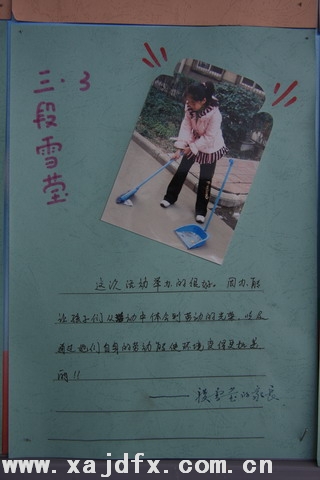 三.3
段雪莹
这次活动举办的很好。因为能
让孩子们从劳动中体会到劳动的光荣，以及
通过他们自身的劳动能使环境变得更加美
丽！！
——段雪莹的家长
www.xajdfx.com.cn